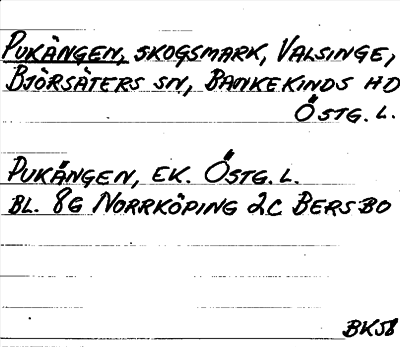 PUKÄNGEN, SKOGSMARK, VALSINGE,
BJÖRSÄTERS SN, BANKEKINDS HD
ÖSTG. L.
PUKÄNGEN, EK. ÖSTG. L.
BL. 8G NORRKÖPING 2C BERSBO
BK58